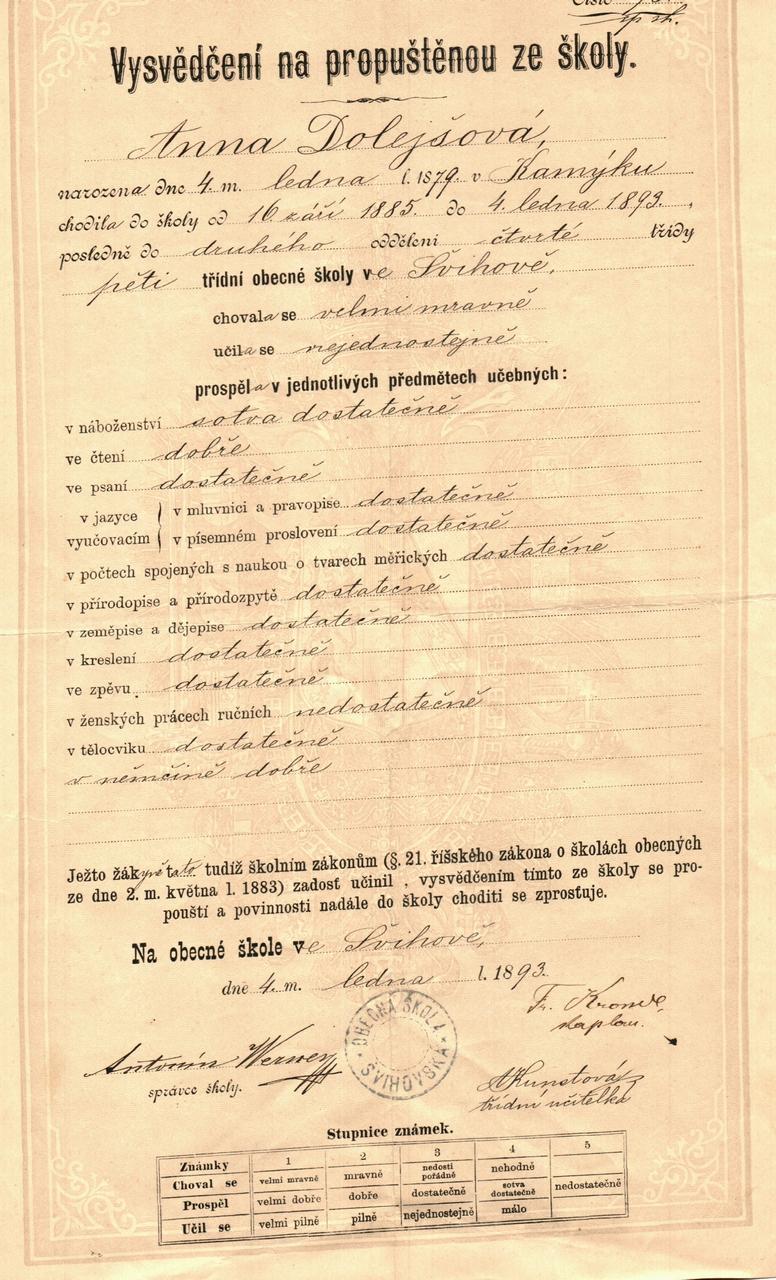 Číslo
Vysvědčení na propuštěnou ze školy.
Anna Dolejšová,
narozena dne 4. m. ledna l. 1879. v Kamýku
chodila do školy od 16. září 1885. do 4. ledna 1893.,
posledně do druhého oddělení čtvrté třídy
pěti třídní obecné školy ve Švihově,
chovala se velmi mravně
učila se nejednostejně
prospěla v jednotlivých předmětech učebných:
v náboženství sotva dostatečně
ve čtení dobře
ve psaní dostatečně
v jazyce vyučovacím
v mluvnici a pravopise dostatečně
v písemném proslovení dostatečně
v počtech spojených s naukou o tvarech měřických dostatečně
v přírodopise a přírodozpytě dostatečně
v zeměpise a dějepise dostatečně
v kreslení dostatečně
ve zpěvu. dostatečně
v ženských prácech ručních nedostatečně
v tělocviku dostatečně
v němčině dobře
Ježto žákyně tato tudíž školním zákonům (§. 21. říšského zákona o školách obecných
ze dne 2. m. května l. 1883) zadosť učinil, vysvědčením tímto ze školy se pro-
pouští a povinnosti nadále do školy choditi se zprosťuje.
Na obecné škole ve Švihově,
dne 4. m. ledna l. 1893.
Fr.
kaplan.
OBECNÁ ŠKOLA
Antonín
správce školy.
AKunstová
třídní učitelka
Stupnice známek.
Známky 1 2 3 4 5
Choval se velmi mravně mravně nedosti pořádně nehodně
Prospěl velmi dobře dobře dostatečně sotva dostatečně nedostatečně
Učil se velmi pilně pilně nejednostejně málo